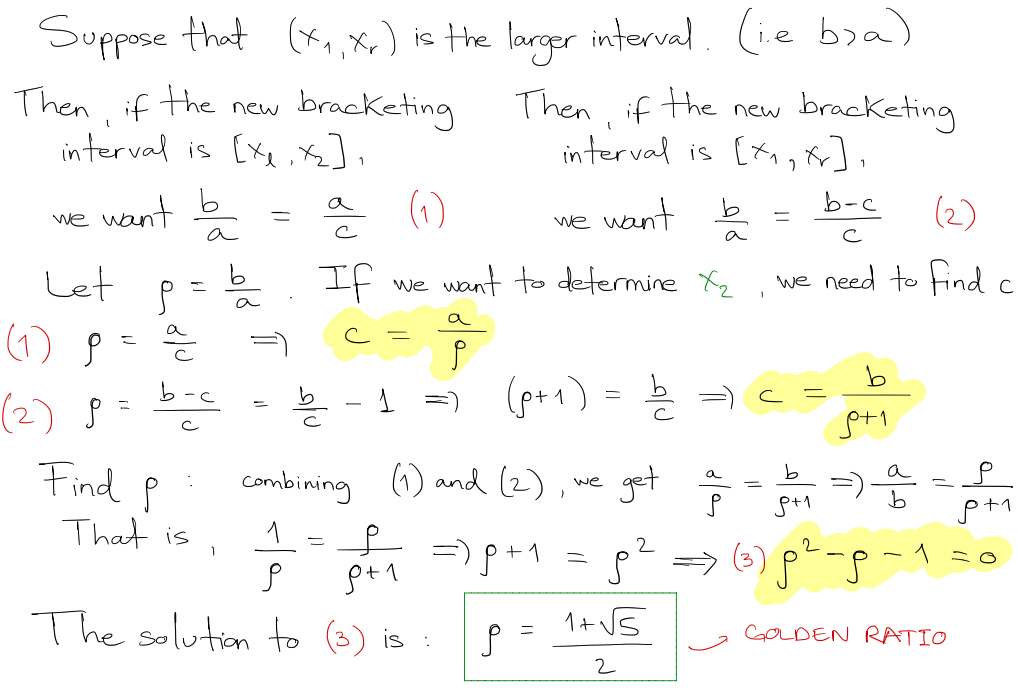 Suppose that (x₁, xᵣ) is the larger interval. (i.e b>a)
Then, if the new bracketing
interval is [xₗ, x₂],
we want b/a = a/c (1)
Then, if the new bracketing
interval is [x₁, xᵣ],
we want b/a = b-c/c (2)
Let ρ = b/a. If we want to determine x₂, we need to find c
(1) ρ = a/c => c = a/ρ
(2) ρ = b-c/c = b/c - 1 => (ρ+1) = b/c => c = b/ρ+1
Find ρ : combining (1) and (2), we get a/ρ = b/ρ+1 => a/b = ρ/ρ+1
That is, 1/ρ = ρ/ρ+1 => ρ+1 = ρ² => (3) ρ²-ρ-1=0
The solution to (3) is : ρ = 1+√5/2 → GOLDEN RATIO